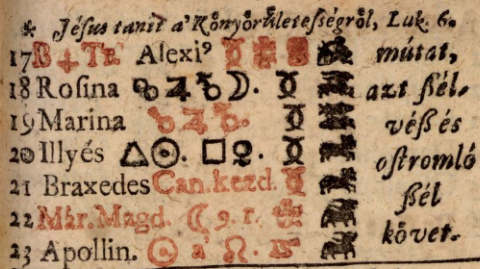 * Jésus tanít a' Könyörületeſſégről, Luk. 6.
17 B + Tr̃ Alexi⁹ mútat,
18 Roſina ☍ ♃ ☍ ☽. azt ſzél-
19 Marina ☍ ♃ ☍. véſz és
20 Illyés △ ☉. □ ♀. oſtromló
21 Braxedes Can. kezd. ſzél
22 Már. Magd. ☾ 9. r. követ.
23 Apollin. ☉ a' ♌.